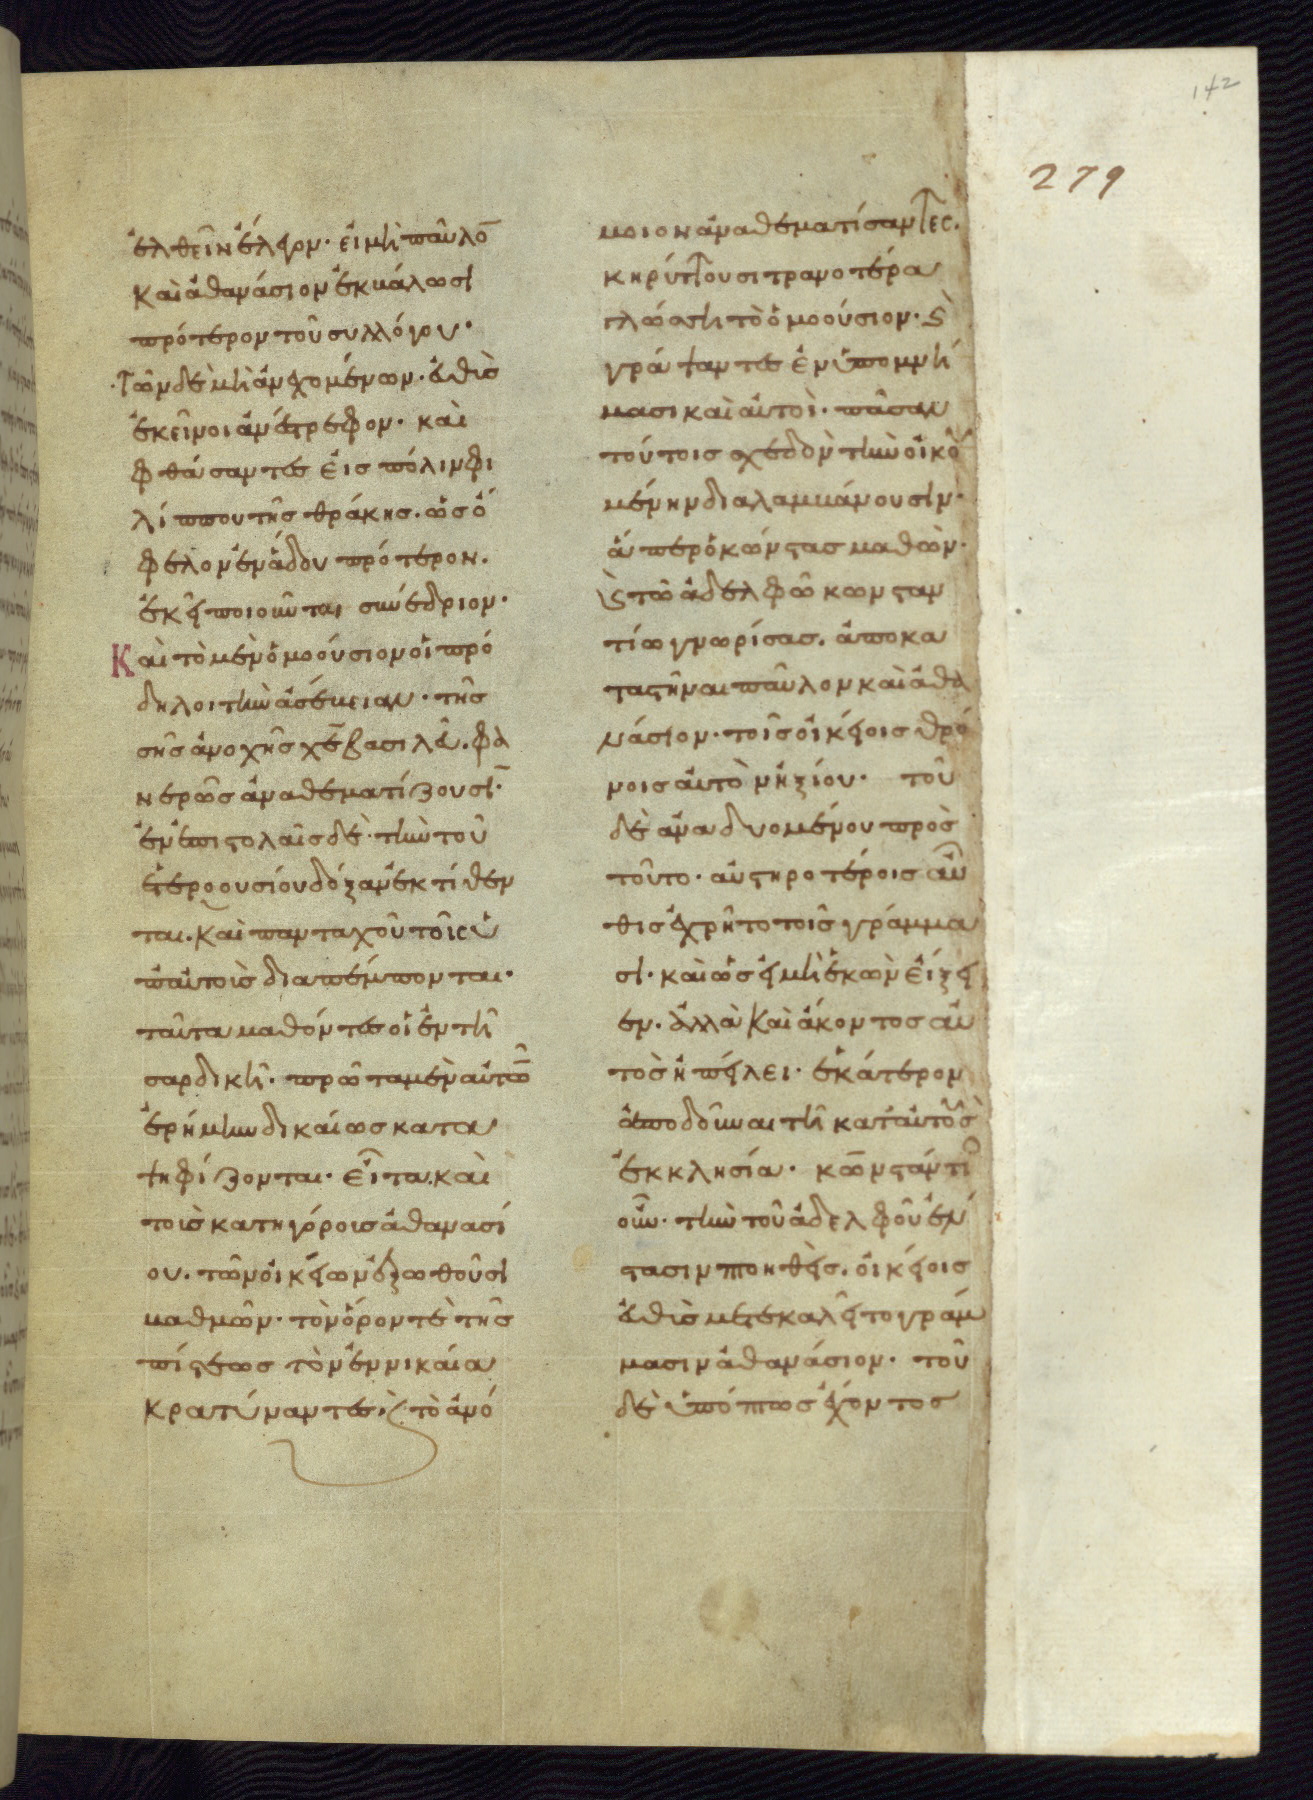 142
279
ἐλθεῖν ἔλεγον· εἰ μὴ παῦλο̅
καὶ ἀθανάσιον ἐκβάλωσι
πρότερον τοῦ συλλόγου·
τῶν δὲ μὴ ἀνεχομένων. εὐθὺς
ἐκεῖνοι ἀνέστρεφον· καὶ
φθάσαντες εἰς πόλιν φι
λίππου τῆς θράκης. ὡς ὄ
φελον ἐν ἅδου πρότερον.
ἐκεῖ ποιοῦνται συνέδριον·
Καὶ τὸ μὲν ὁμοούσιον οἱ πρό
δηλοι τὴν ἀσέβειαν· τῆς
σῆς ἀνοχῆς χε̅ βασιλεῦ. φα
νερῶς ἀναθεματίζουσι̅·
ἐν ἐπιστολαῖς δὲ· τὴν τοῦ
ἑτεροουσίου δόξαν ἐκτίθεν
ται. καὶ πανταχοῦ τοῖς ὑ
π᾽ αὐτοὺς διαπέμπονται·
ταῦτα μαθόντες οἱ ἐν τῆ
σαρδικῆ· πρῶτα μὲν αὐτῶ̅
ἐρήμην δικαίως κατα
ψηφίζονται. εἶτα καὶ
τοὺς κατηγόρους ἀθανασί
ου. τῶν οἰκείων ἐξωθοῦσι
βαθμῶν· τὸν ὅρον τὲ τῆς
πίστεως τὸν ἐν νικαία
κρατύναντες. καὶ τὸ ἀνό
μοιον ἀναθεματίσαντες.
κηρύττουσι τρανοτέρα
γλώσση τὸ ὁμοούσιον· καὶ
γράψαντες ἐν ὑπομνή
μασι καὶ αὐτοὶ· πᾶσαν
τούτοις σχεδὸν τὴν οἰκου
μένην διαλαμβάνουσιν·
ἅπερ ὁ κώνστας μαθὼν·
καὶ τῶ ἀδελφῶ κωνσταν
τίω γνωρίσας. ἀποκα
ταστῆναι παῦλον καὶ ἀθα
νάσιον· τοῖς οἰκείοις θρό
νοις αὐτὸν ἠξίου· τοῦ
δὲ ἀναδυομένου πρὸς
τοῦτο· αὐστηροτέροις αὖ
θις ἐχρῆτο τοῖς γράμμα
σι· καὶ ὡς εἰ μὴ ἑκὼν εἴξει
εν. ἀλλὰ καὶ ἄκοντος αὐ
τὸς ἠπείλει· ἑκάτερον
ἀποδοῦναι τῆ κατ᾽ αὐτοὺς
ἐκκλησία· κωνστάντι
οὖν· τὴν τοῦ ἀδελφοῦ ἔν
στασιν πτοηθεὶς. οἰκείοις
εὐθὺς μετεκαλεῖτο γράμ
μασιν ἀθανάσιον· τοῦ
δὲ ὑπόπτως ἔχοντος